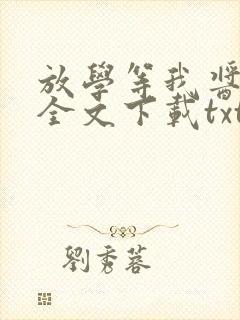 放學等我醬
全文下載txt
劉秀蓉